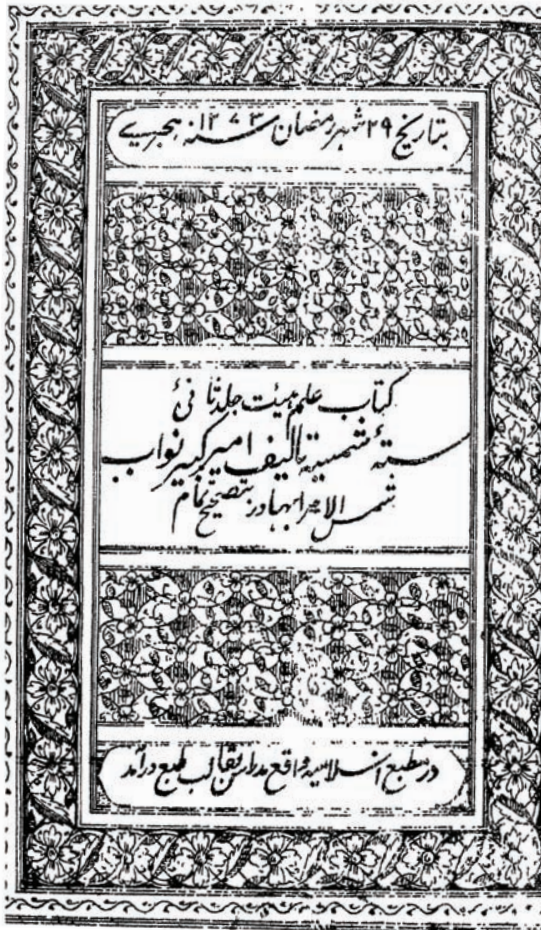 بتاریخ ۲۹ شهر رمضان ۱۲۷۳ سنه هجریے
کتاب علم هیئت جلد ثانئ
ستهٔ شمسیة تالیف امیر کبیر نواب
شمس الامرا بهادر بتصحیح تمام
در مطبع اسلامیه واقع مدراس بقالب طبع درآمد